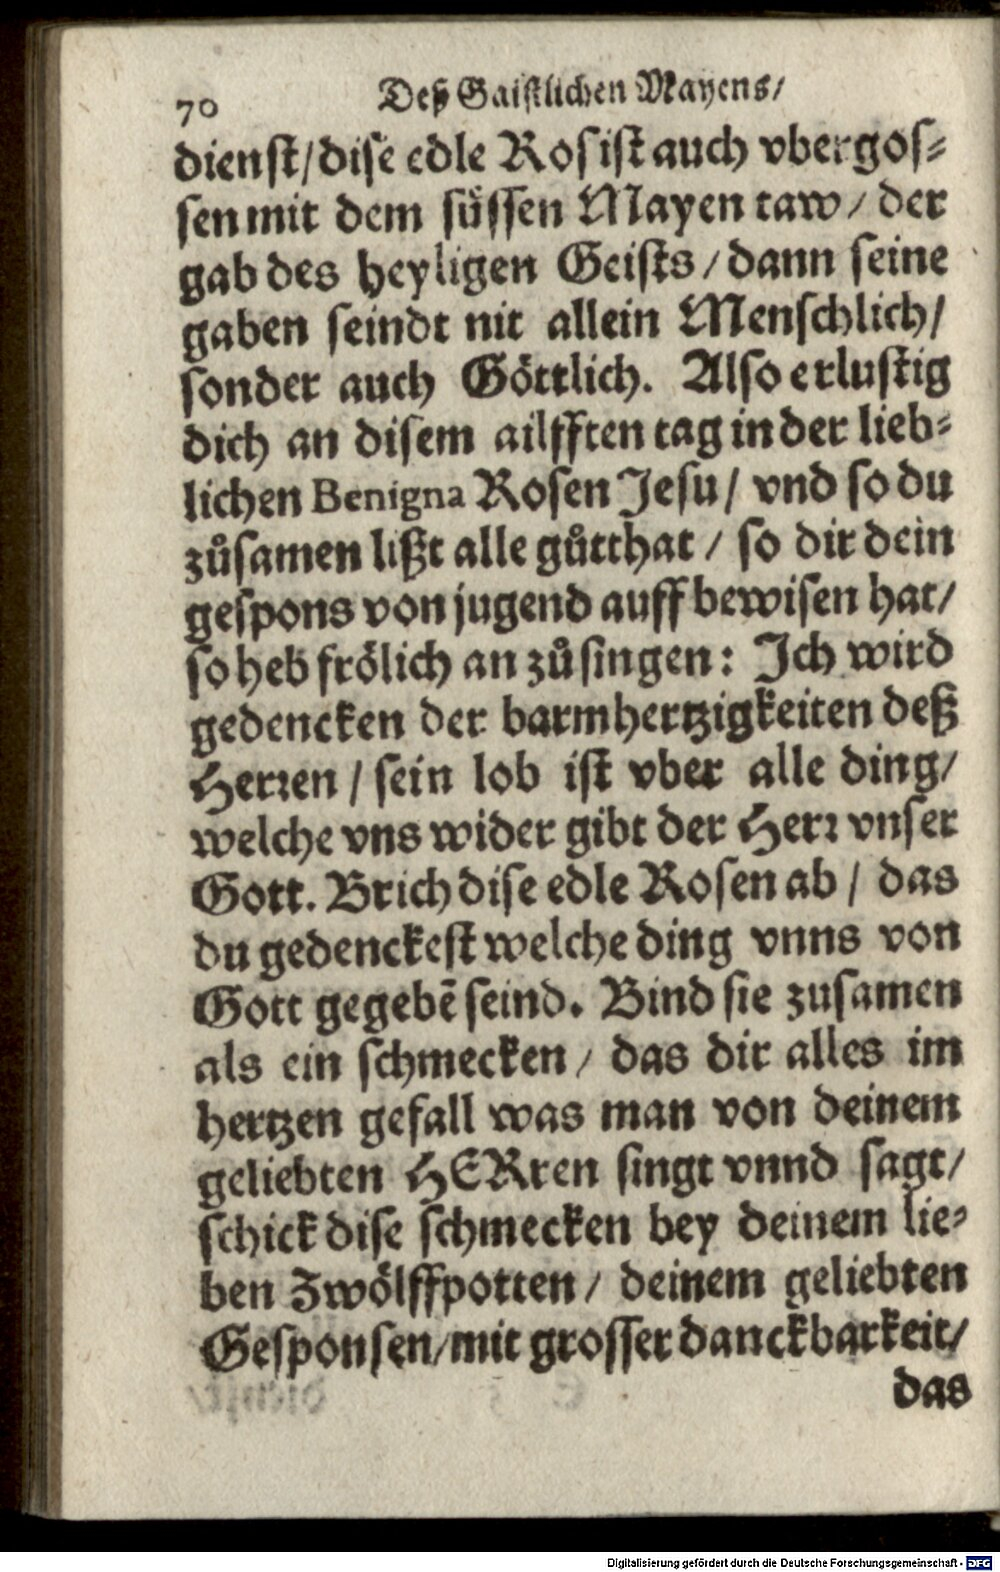 70 Deß Gaistlichen Mayens/
dienst/dise edle Ros ist auch vbergos⸗
sen mit dem süssen Mayen taw/ der
gab des heyligen Geists/dann seine
gaben seindt nit allein Menschlich/
sonder auch Göttlich. Also erlustig
dich an disem ailfften tag in der lieb⸗
lichen Benigna Rosen Jesu/ vnd so du
zůsamen lißt alle gůtthat/ so dir dein
gespons von jugend auff bewisen hat/
so heb frölich an zů singen: Ich wird
gedencken der barmhertzigkeiten deß
Herꝛen/ sein lob ist vber alle ding/
welche vns wider gibt der Herꝛ vnser
Gott. Brich dise edle Rosen ab/ das
du gedenckest welche ding vnns von
Gott gegebẽ seind. Bind sie zusamen
als ein schmecken/ das dir alles im
hertzen gefall was man von deinem
geliebten HERren singt vnnd sagt/
schick dise schmecken bey deinem lie⸗
ben Zwölffpotten/ deinem geliebten
Gesponsen/mit grosser danckbarkeit/
das
Digitalisierung gefördert durch die Deutsche Forschungsgemeinschaft - DFG